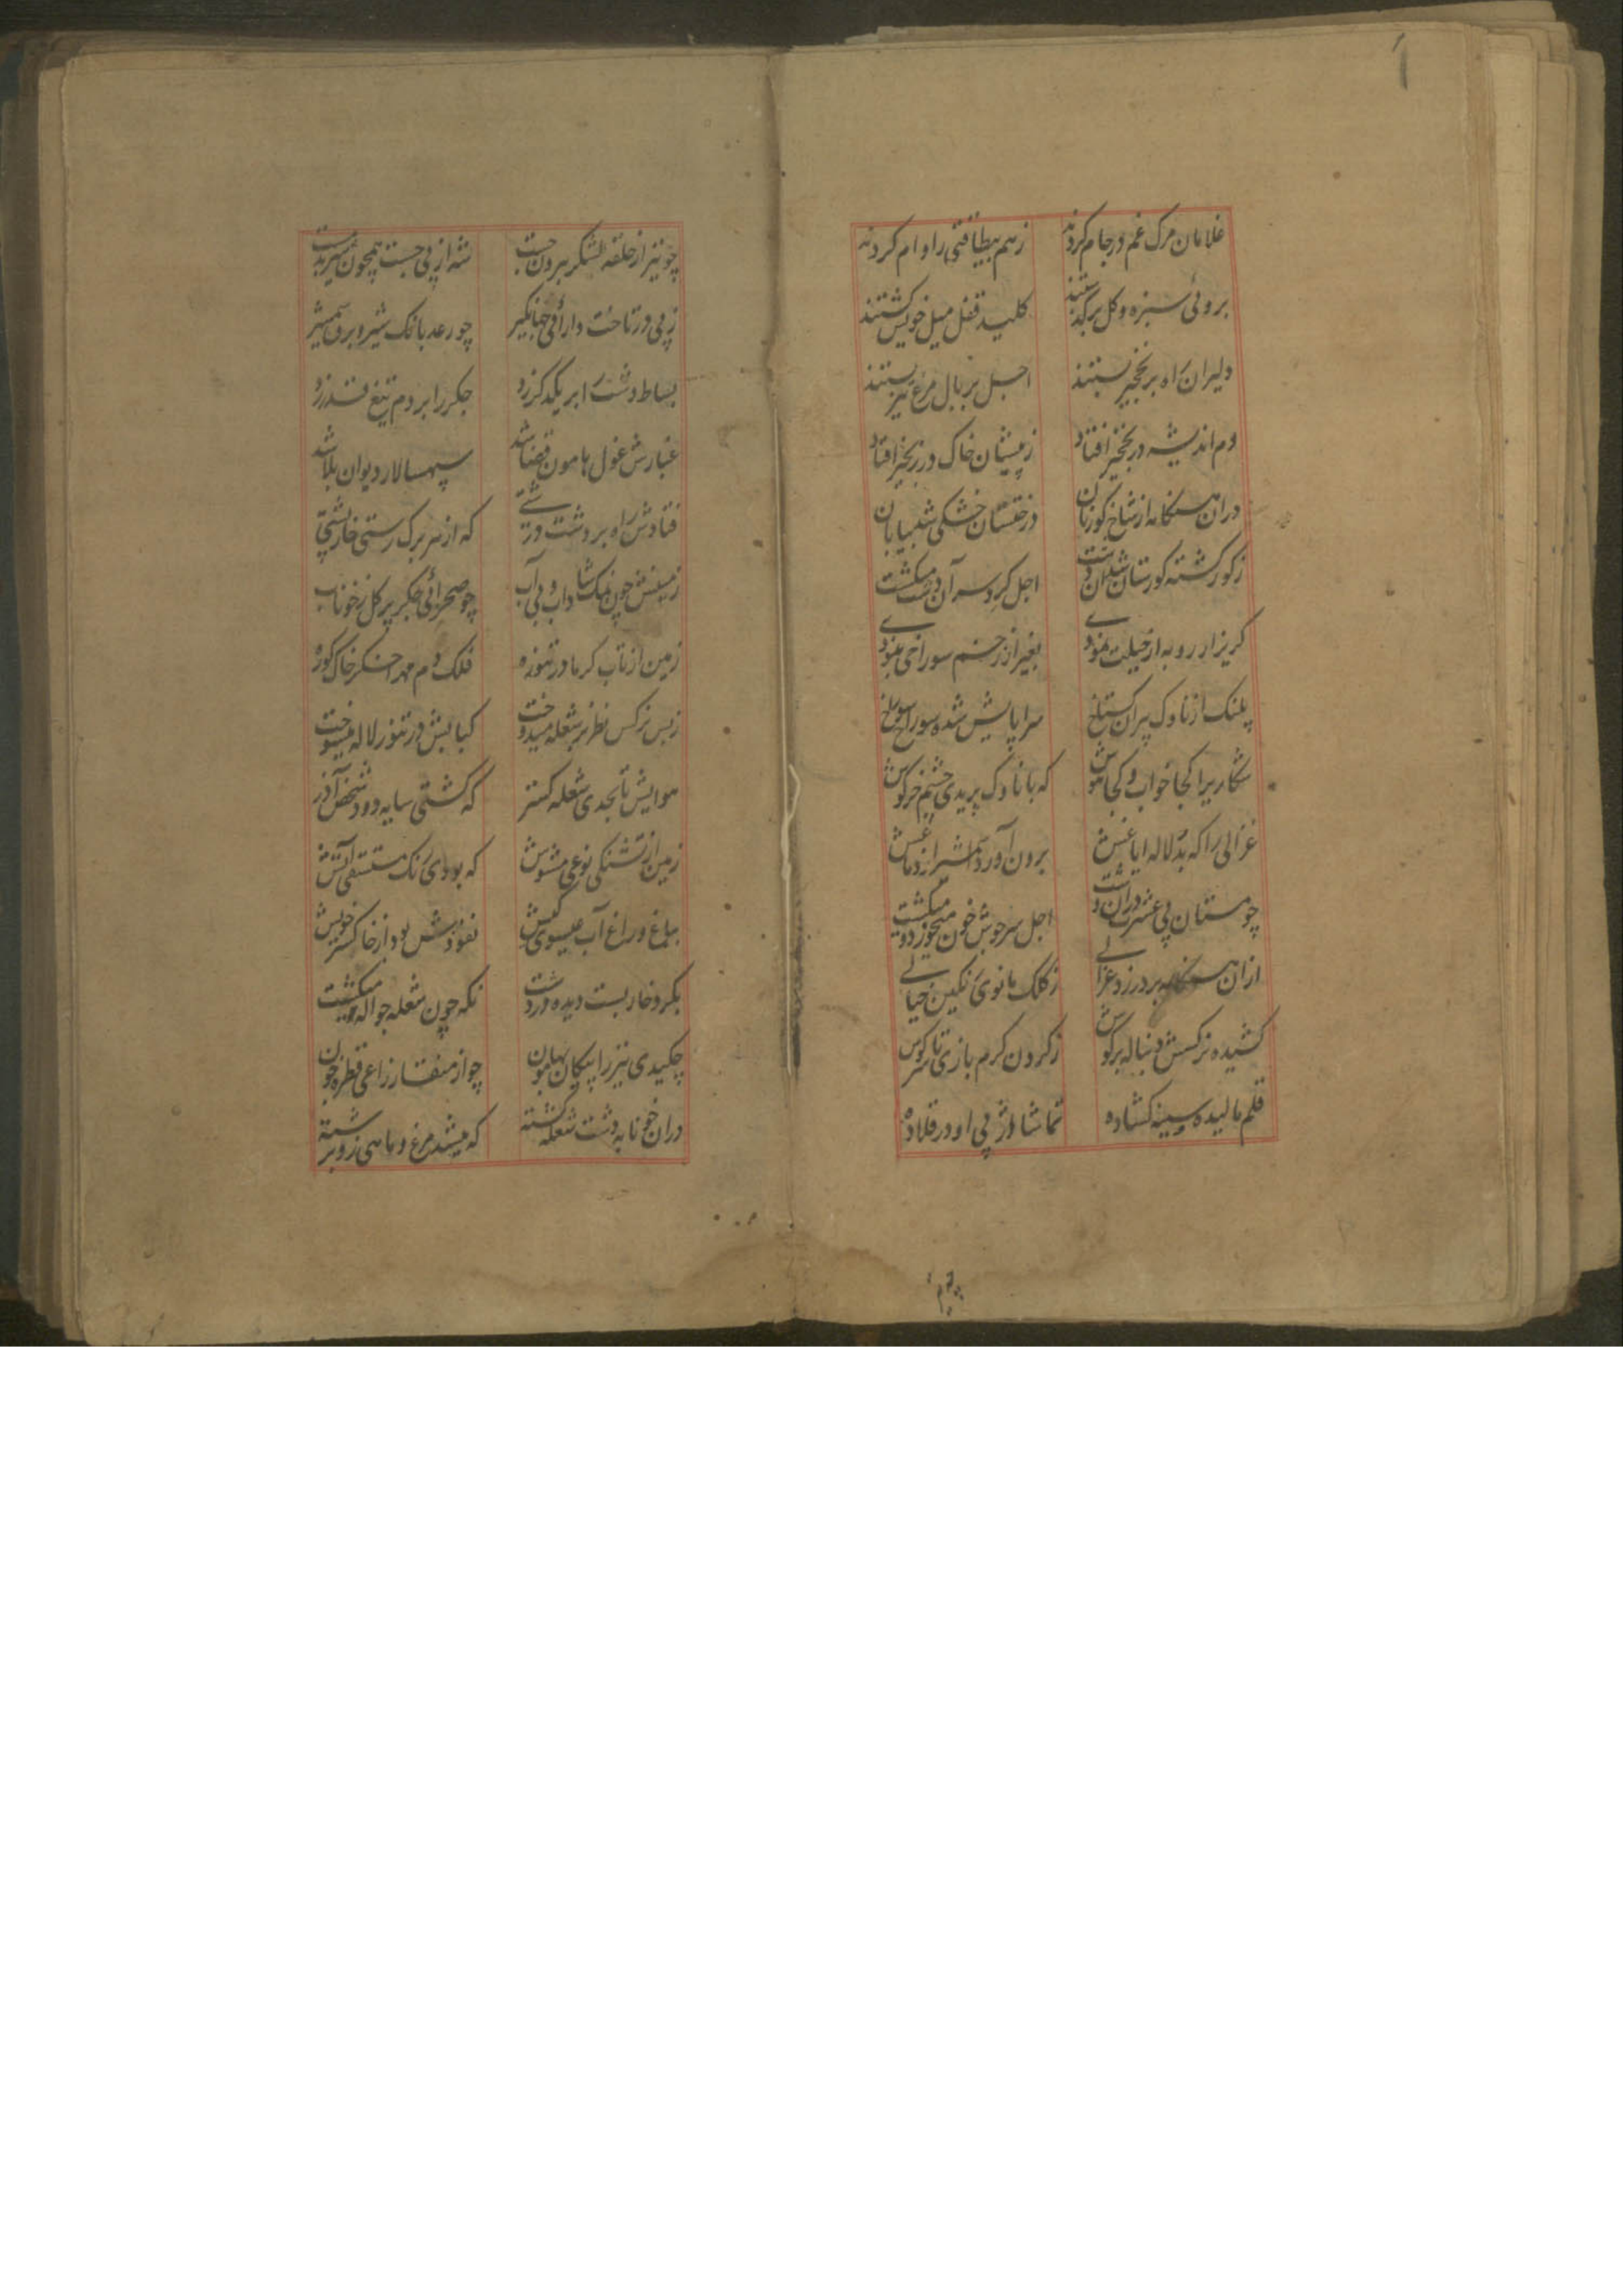 غلامان مرک غم در جام کردند زهم بیطاقتی را وام کردند
بروئی سبزه و کل برکذشتند کلید قفل میل خویش کشتند
دلیران راه بر نخجیر بستند اجل بر بال مرغ تیر بستند
دم اندیشه در نخجیر افتاد زپیشان خاک در زنجیر افتاد
دران هنکامه از شاخ کوزنان درختستان خشکی شد بیابان
زکور کشته کورستان شد آن دشت اجل کرد سر آن دشت میکشت
کریزار روبه از حیلت نمودی بغیر از زخم سوراخی نبودی
پلنک از ناوک پران کستاخ سراپایش شده سوراخ سوراخ
شکاریرا کجا خواب و کجا هوش که با ناوک پریدی چشم خرکوش
غزالی را که بد لاله ایاغش برون آورد شیر از دماغش
چو مستان پی عشرت دران دشت اجل سرجوش خون میخورد و میکشت
ازان هنکامه بر در زد غزالی زکلک مانوی نکین خیالی
کشیده نرکسش دنباله بر کوش زکردن کرم بازی تا سر کوش
قلم مالیده و سینه کشاده تماشا از پی او در قلاده
چو تیر از حلقه لشکر برون جست شه از پی جست همچون شیر بدمست
زپی در تاخت دارائی جهانکیر چو رعد بانک شیر و برق شمشیر
بساط دشت را بر یکدکر زد جکر را بر دم تیغ قدر زد
غبارش غول هامون قضا شد سپهسالار دیوان بلا شد
فتادش راه بر دشت درشتی که از سر برک رستی خارپشتی
زمینش چون نمک شاداب و بی آب چو صحرائی جکر پر کل زخوناب
زمین از تاب کرما در تنوره فلک دم مهر اخکر خاک کوره
زبس نرکس نظر بر شعله میدوخت کبابش در تنور لاله میسوخت
هوایش تا بحدی شعله کستر که کشتی سایه دود شخص آذر
زمین از تشنکی نوعی مشوش که بودی ریک مستسقی آتش
بباغ و راغ آب عیسوی کیش نفوذش بود از خاکستر خویش
بکرد خاربست دیده در دشت نکه چون شعله جواله میکشت
چکیدی تیز را پیکان بهامون چو از منقار زاغی قطره خون
دران خونابه دشت شعله کشته که میشد مرغ و ماهی زو برشته